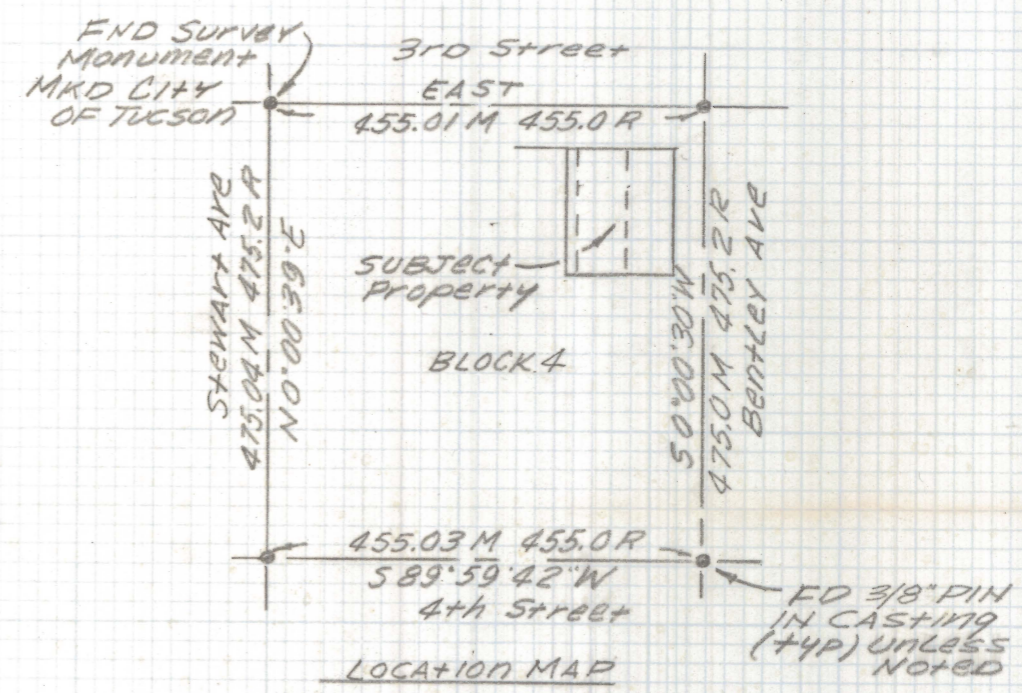 FND Survey
Monument
MKD City
OF Tucson
3rd Street
EAST
455.01 M 455.0 R
Stewart Ave
475.04 M 475.2 R
N 0°00'39"E
SUBJect
Property
BLOCK 4
S 0°00'30"W
475.0 M 475.2 R
Bentley Ave
455.03 M 455.0 R
S 89°59'42"W
4th Street
FD 3/8" PIN
IN CASting
(typ) unLess
Noted
LOCAtion MAP